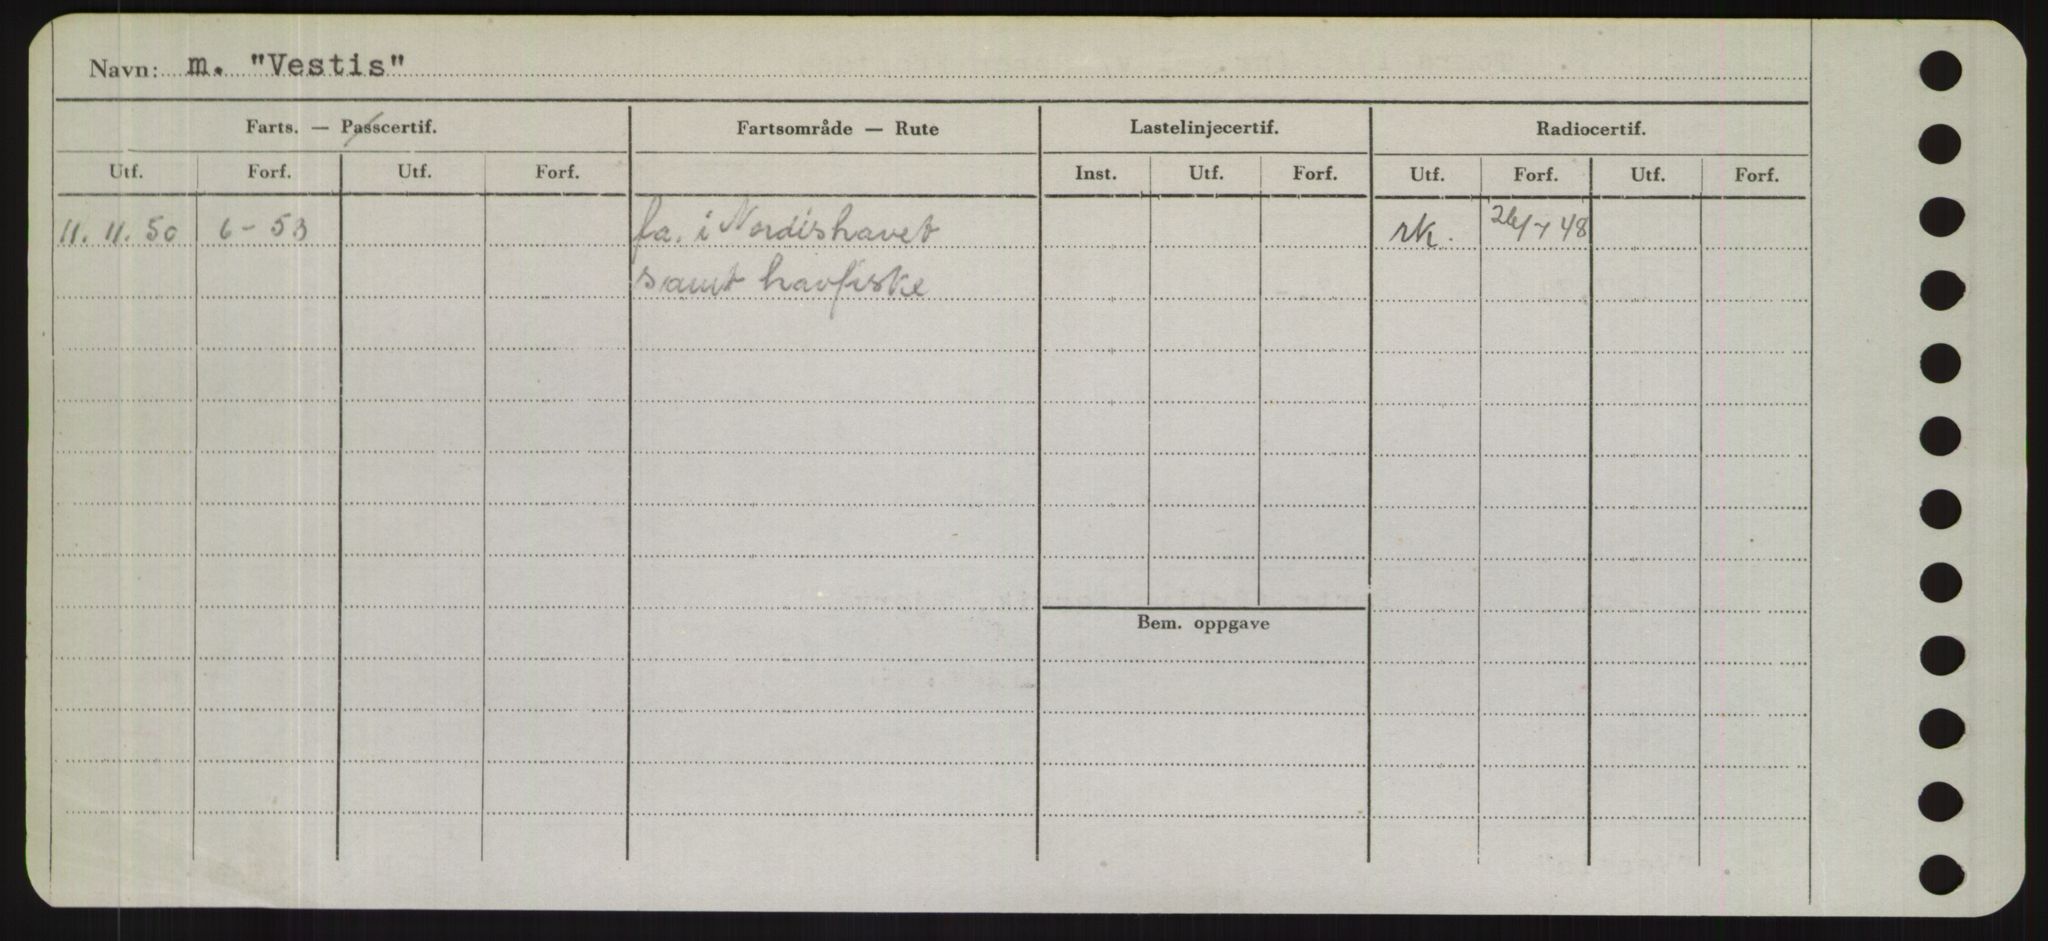 Navn: m. "Vestis"
Farts. — Passcertif. Fartsområde — Rute Lastelinjecertif. Radiocertif.
Utf. Forf. Utf. Forf. Inst. Utf. Forf. Utf. Forf. Utf. Forf.
11. 11. 50 6 - 53 fa. i Nordishavet rk. 26/7 48
samt havfiske
Bem. oppgave